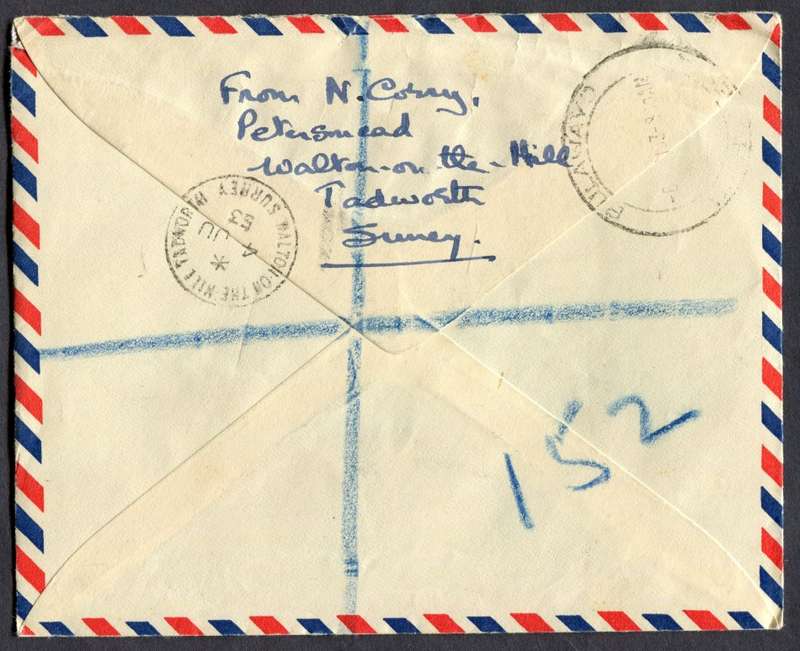 From N. Corry,
Petersmead
Walton-on-the-Hill
Tadworth
Surrey.
WALTON-ON-THE-HILL TADWORTH SURREY
*
4 JU
53
BULAWAYO
152